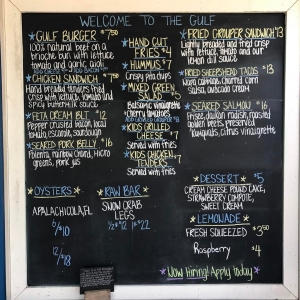 WELCOME TO THE GULF
GULF BURGER $7.50
100% natural beef on a
brioche bun with lettuce,
tomato and garlic aioli
ADD CHEESE ADD BACON
CHICKEN SANDWICH
Hand breaded tenders fried
crisp with lettuce, tomato and
spicy buttermilk sauce
FETA CREAM BLT $12
Pepper crusted bacon, local
tomato, escarole, sourdough
SEARED PORK BELLY $16
Polenta, rainbow chard, micro
greens, pork jus
HAND CUT
FRIES $4
HUMMUS $7
Crispy pita chips
MIXED GREEN
SALAD $5
Balsamic vinaigrette
cherry tomatoes
ADD GRILLED GROUPER $8
KIDS GRILLED
CHEESE $7
Served with fries
KIDS CHICKEN
TENDERS
Served with fries
FRIED GROUPER SANDWICH $13
Lightly breaded and fried crisp
with lettuce, tomato and our
lemon dill sauce
FRIED SHEEPSHEAD TACOS $13
Salsa, avocado cream
SEARED SALMON $16
Frisee, roasted
golden beets, preserved
Kumquats, citrus vinaigrette
OYSTERS
APALACHICOLA, FL
6/$10
12/$18
RAW BAR
SNOW CRAB
LEGS
½# $12 1# $22
DESSERT $5
CREAM CHEESE POUND CAKE,
STRAWBERRY COMPOTE,
SWEET CREAM
LEMONADE
FRESH SQUEEZED $3.50
Raspberry $4
Now Hiring! Apply today